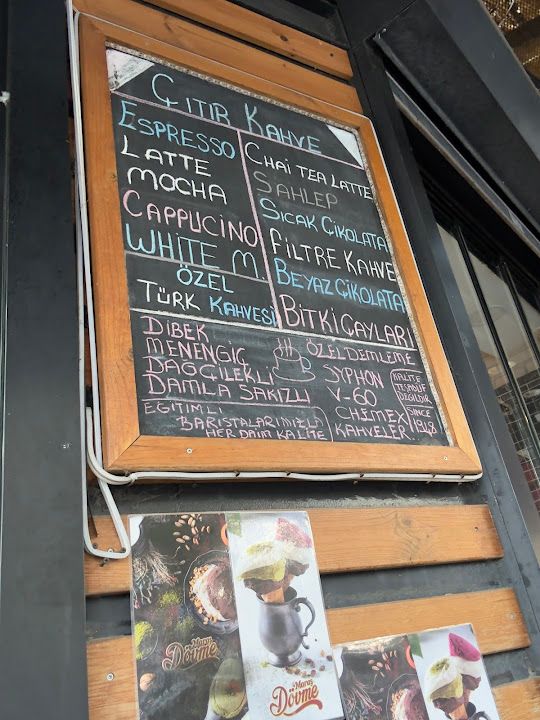 ÇITIR KAHVE
ESPRESSO
LATTE
MOCHA
CAPPUCINO
WHITE M.
CHAI TEA LATTE
SAHLEP
SICAK ÇİKOLATA
FİLTRE KAHVE
BEYAZ ÇİKOLATA
BİTKİ ÇAYLARI
ÖZEL
TÜRK KAHVESİ
DİBEK
MENENGİÇ
DAĞÇİLEKLİ
DAMLA SAKIZLI
ÖZEL DEMLEME
SYPHON
V-60
CHEMEX
KAHVELER.
KALİTE
TESADÜF
DEĞİLDİR
SINCE
1948
EĞİTİMLİ
BARİSTALARIMIZLA
HER DAİM KALİTE
Maraş
Dövme
Maraş
Dövme